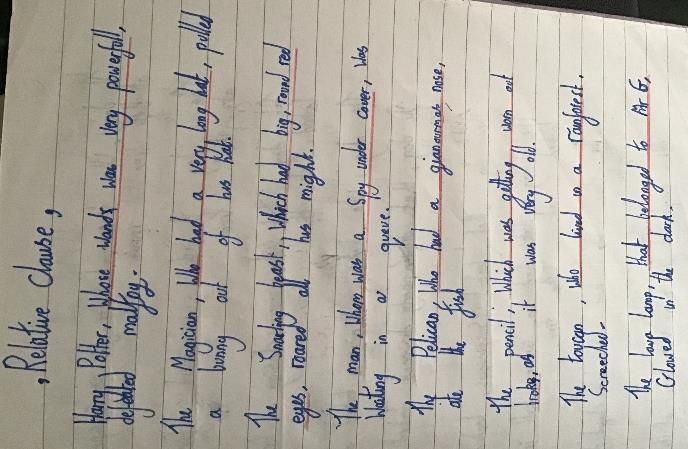 , Relative Clause,
Harry Potter, Whose wands was very powerfull,
defeated malfoy.
The Magician, Who had a very long hat, pulled
a bunny out of his hat.
The Snaring beast, Which had big, round red
eyes, roared all his might.
The man, whom was a Spy under cover, was
Waiting in a queue.
The Pelican, who had a nose,
ate the fish
The pencil, Which was getting worn out
broke, as it was very old.
The toucan, who lived in a rainforest,
Screeched.
The lava lamp, that belonged to Mr G,
Glowed in the dark.